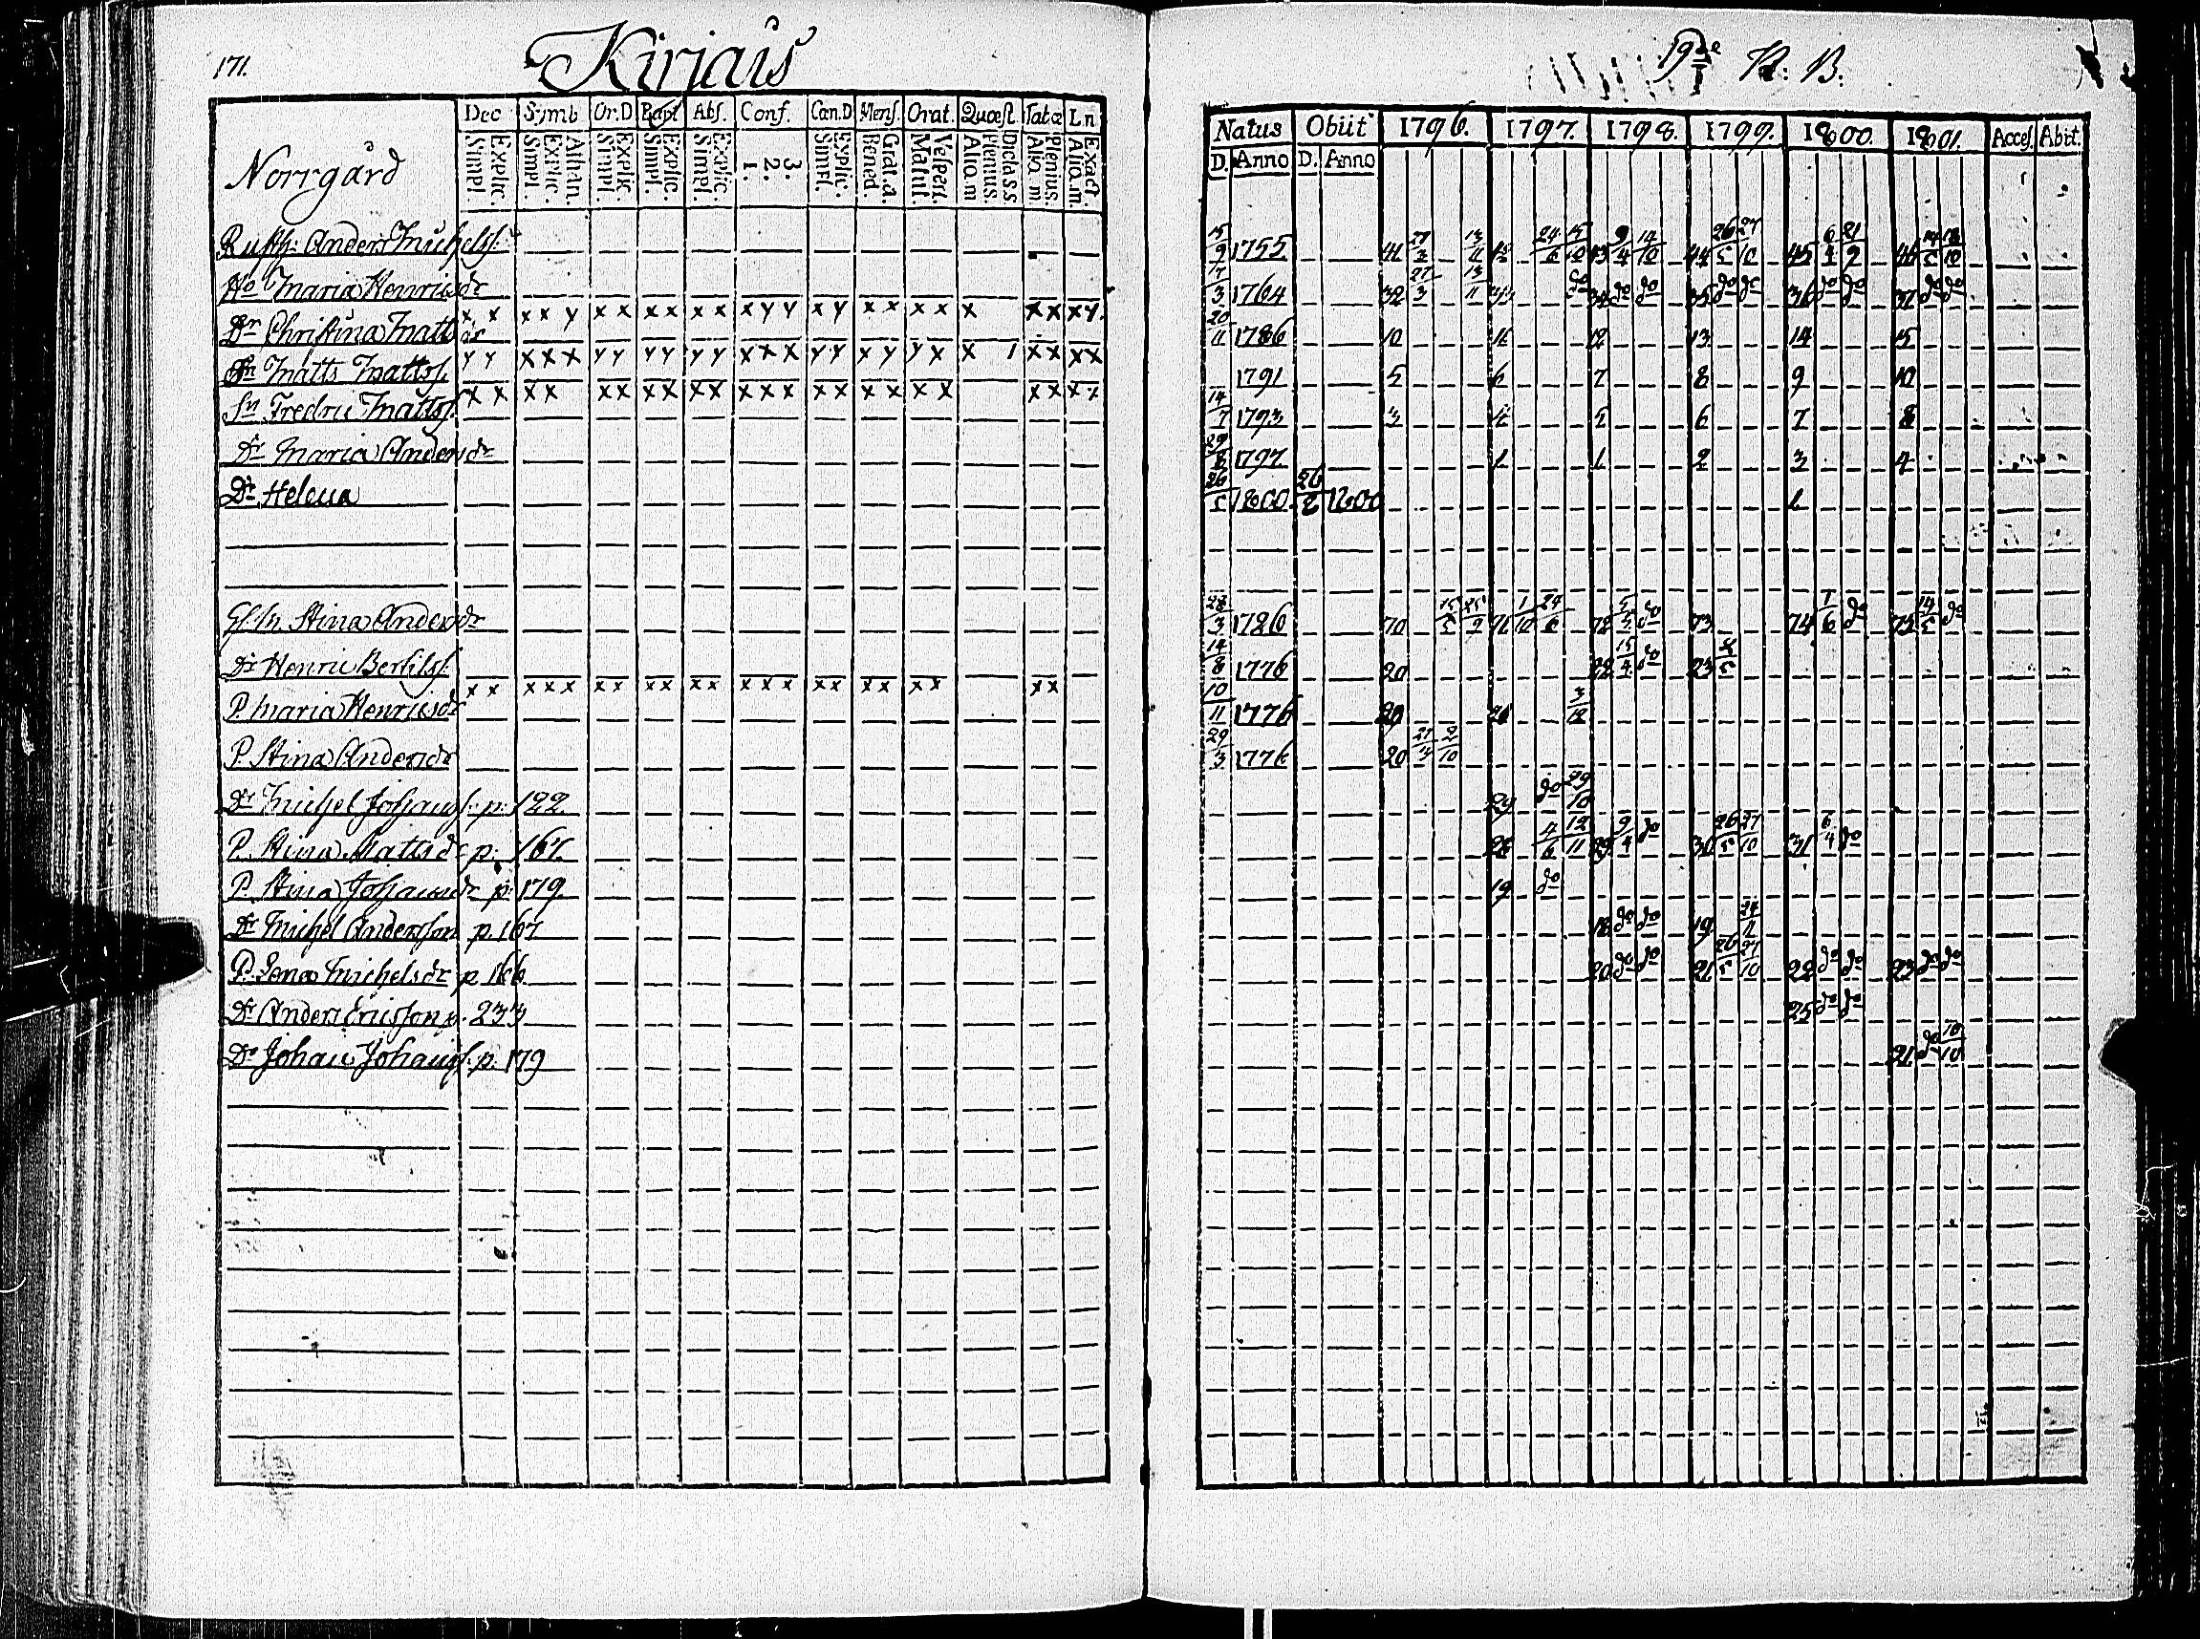 171. Kirjais
Norrgård
Dec Symb Or.D Bapt Abs. Conf. Cæn.D Mens. Orat. Quæst. Tabæ Ln
Simpl. Explic. Simpl. Explic. Athan. Simpl. Explic. Simpl. Explic. Simpl. Explic. 1. 2. 3. Simpl. Explic. Bened. Grat.a. Matut. Vespert. Aliq.m Plenius. Dictass Aliq.m Plenius. Aliq.m. Exact.
Rusth: Anders Michelss:
Ho Maria Henricsdr
Dr Christina Mattsdr x x x x y x x x x x x x y y x y x x x x x x x x y
Sn Matts Mattss. y y x x x y y y y y y x x x y y x y y x x 1 x x x x
Sn Fredric Mattss. x x x x x x x x x x x x x x x x x x x x x x x
Dr Maria Andersdr
Dr Helena
Stina Andersdr
Dr Henric Bertilss.
P. Maria Henricsdr x x x x x x x x x x x x x x x x x x x x x
P. Stina Andersdr
Dr Michel Johanss: p: 122.
P. Stina Mattsdr p: 167.
P. Stina Johansdr p: 179.
Dr Michel Andersson p. 167
P. Lena Michelsdr p. 166
Dr Anders Ericsson p. 233
Dr Johan Johanss. p. 179
19de R: B.
Natus Obiit 1796. 1797. 1798. 1799. 1800. 1801. Acces. Abit.
D. Anno D. Anno
15/9 1755 41 27/3 13/11 42 24/6 15/10 43 9/4 14/10 44 26/5 27/10 45 6/4 21/9 46 14/5 18/10
17/3 1764 32 27/3 13/11 33 do 34 do do 35 do do 36 do do 37 do do
20/11 1786 10 11 12 13 14 15
1791 5 6 7 8 9 10
14/7 1793 3 4 5 6 7 8
29/8 1797 1 1 2 3 4
26/5 1800. 26/8 1800 1
28/3 1726 70 15/5 25/9 71 1/10 24/6 72 5/5 do 73 74 1/6 do 75 14/5 do
14/8 1776 20 22 15/4 do 23
10/11 1776 20 21 3/12
29/3 1776 20 27/3 2/10
29 do 29/10
28 4/6 12/11 29 9/4 do 30 26/5 27/10 31 6/4 do
19 do
18 do do 19
20 do do 21 26/5 27/10 22 do do 23 do do
25 do do
21 do 18/10